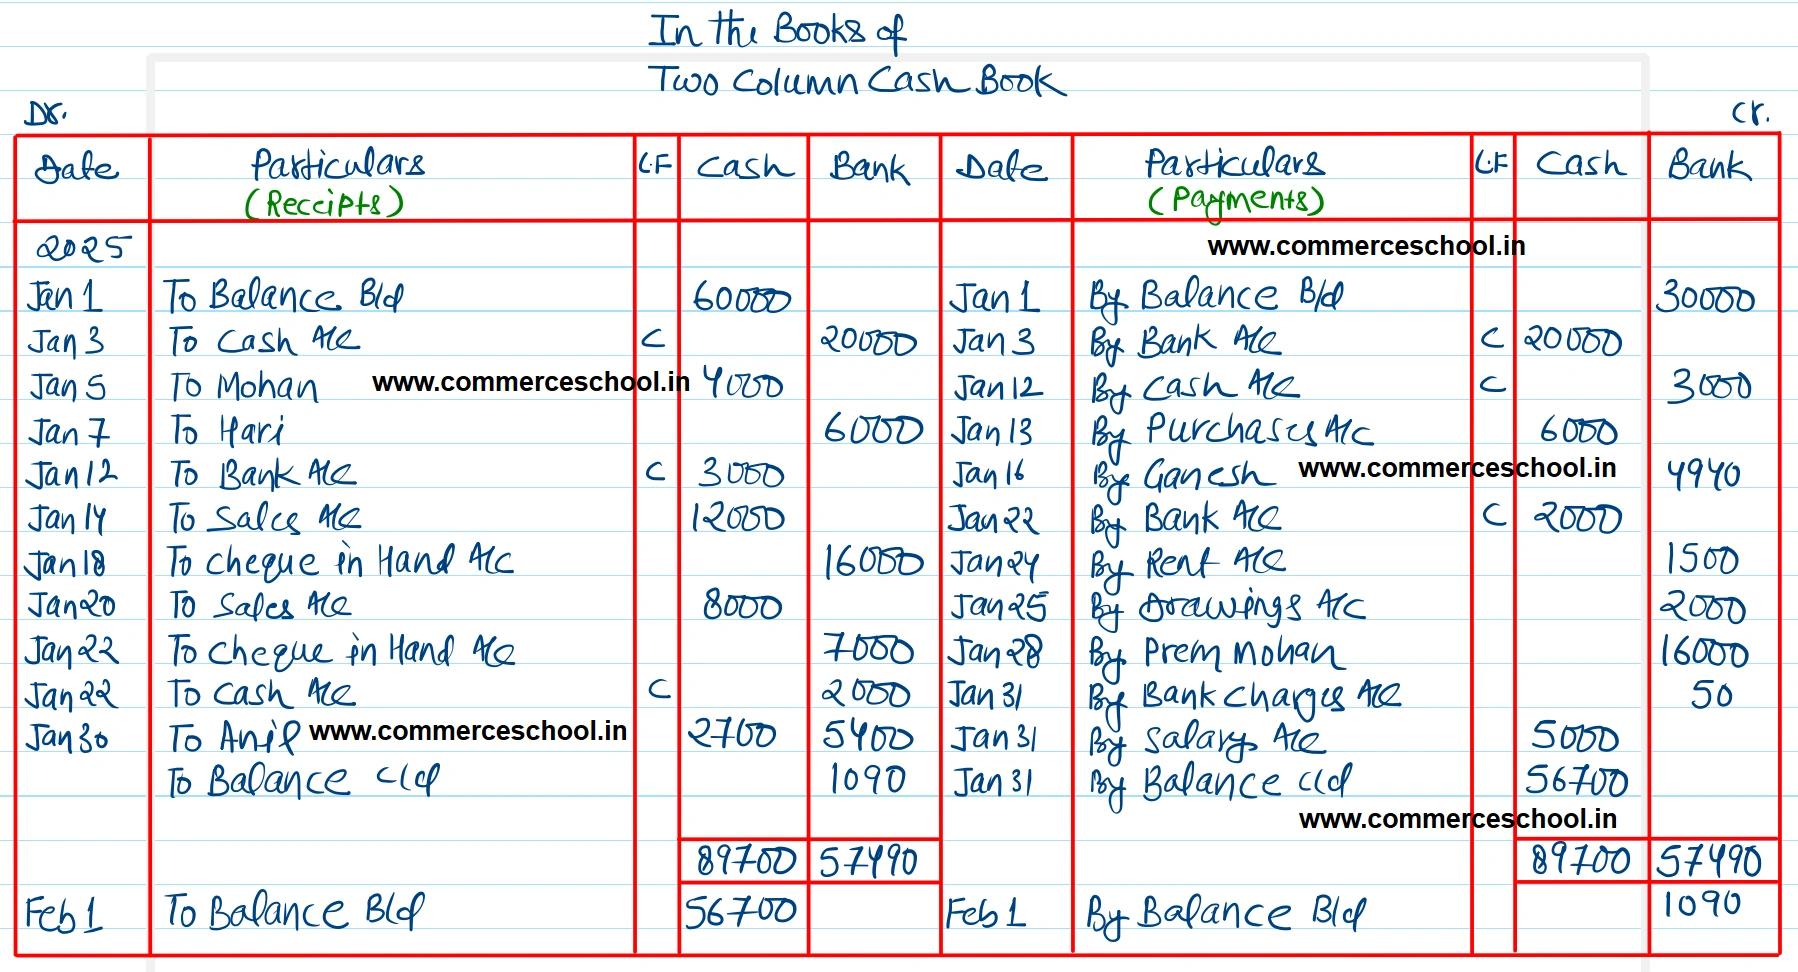 In the Books of
Two Column Cash Book
Dr. Cr.
Date Particulars L.F Cash Bank Date Particulars L.F Cash Bank
(Receipts) (Payments)
2025 www.commerceschool.in
Jan 1 To Balance B/d 60000 Jan 1 By Balance B/d 30000
Jan 3 To Cash A/c C 20000 Jan 3 By Bank A/c C 20000
Jan 5 To Mohan www.commerceschool.in 4000 Jan 12 By Cash A/c C 3000
Jan 7 To Hari 6000 Jan 13 By Purchases A/c 6000
Jan 12 To Bank A/c C 3000 Jan 16 By Ganesh www.commerceschool.in 4940
Jan 14 To Sales A/c 12000 Jan 22 By Bank A/c C 2000
Jan 18 To cheque in Hand A/c 16000 Jan 24 By Rent A/c 1500
Jan 20 To Sales A/c 8000 Jan 25 By Drawings A/c 2000
Jan 22 To cheque in Hand A/c 7000 Jan 28 By Prem Mohan 16000
Jan 22 To Cash A/c C 2000 Jan 31 By Bank Charges A/c 50
Jan 30 To Anil www.commerceschool.in 2700 5400 Jan 31 By Salary A/c 5000
To Balance c/d 1090 Jan 31 By Balance c/d 56700
www.commerceschool.in
89700 57490 89700 57490
Feb 1 To Balance B/d 56700 Feb 1 By Balance B/d 1090